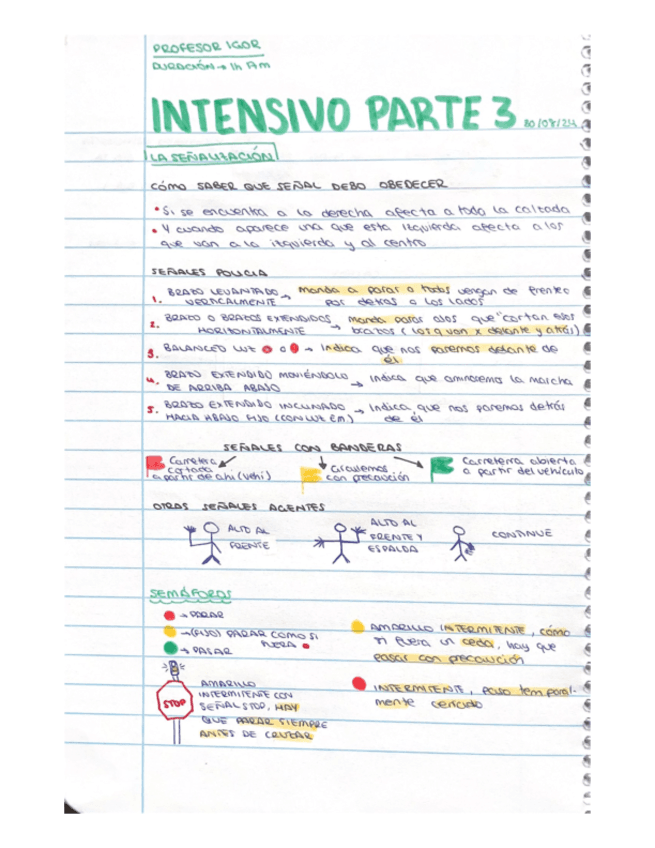 PROFESOR IGOR
DURACIÓN → 1h Am
INTENSIVO PARTE 3 20/08/24
LA SEÑALIZACIÓN
CÓMO SABER QUE SEÑAL DEBO OBEDECER
• Si se encuentra a la derecha afecta a toda la calzada
• Y cuando aparece una que esta izquierda afecta a los
que van a la izquierda y al centro
SEÑALES POLICIA
1. BRAZO LEVANTADO VERTICALMENTE → manda a parar a todos vengan de frente
por detras o los lados
2. BRAZO O BRAZOS EXTENDIDOS HORIZONTALMENTE → manda parar a los que "cortan esos
brazos (los q van x delante y atrás)
3. BALANCEO LUZ o → indica que nos paremos delante de
él
4. BRAZO EXTENDIDO MOVIÉNDOLO DE ARRIBA ABAJO → indica que aminoremos la marcha
5. BRAZO EXTENDIDO INCLINADO HACIA ABAJO FIJO (CON LUZ EM) → Indica que nos paremos detrás
de él
SEÑALES CON BANDERAS
Carretera cortada a partir de ahi (vehi)
Circulemos con precaución
Carreterra abierta a partir del vehículo
OTRAS SEÑALES AGENTES
ALTO AL FRENTE
ALTO AL FRENTE Y ESPALDA
CONTINUE
SEMÁFOROS
→ PARAR
→ (FIJO) PARAR COMO SI FUERA
→ PASAR
AMARILLO INTERMITENTE, cómo
si fuera un ceda, hay que
pasar con precaución
STOP
AMARILLO
INTERMITENTE CON
SEÑAL STOP, HAY
QUE PARAR SIEMPRE
ANTES DE CRUZAR
INTERMITENTE, paso temporal-
mente cerrado